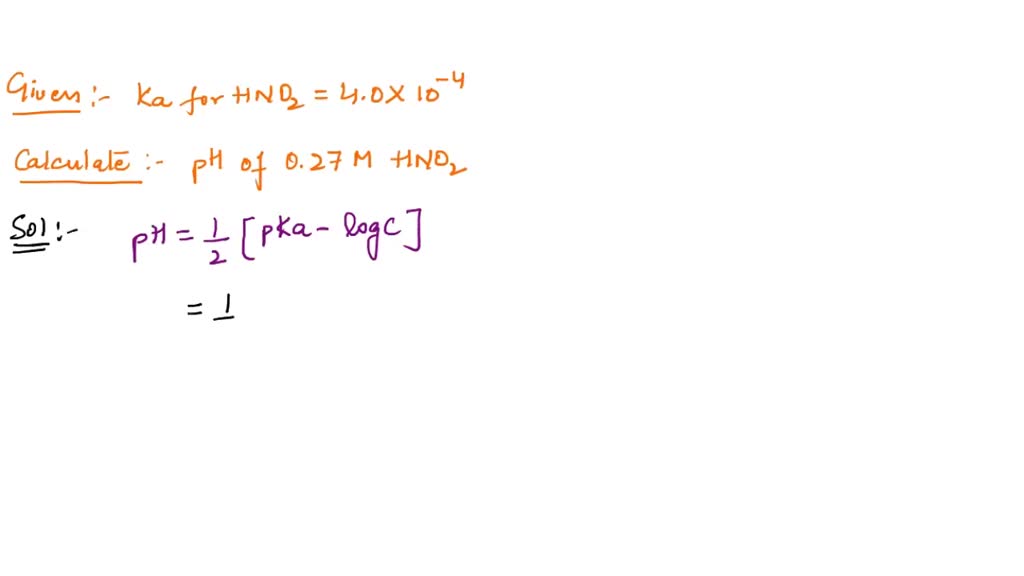 Given :- Ka for HNO2 = 4.0 X 10^-4
Calculate :- pH of 0.27 M HNO2
Sol :- pH = 1/2 [pKa - log C]
= 1